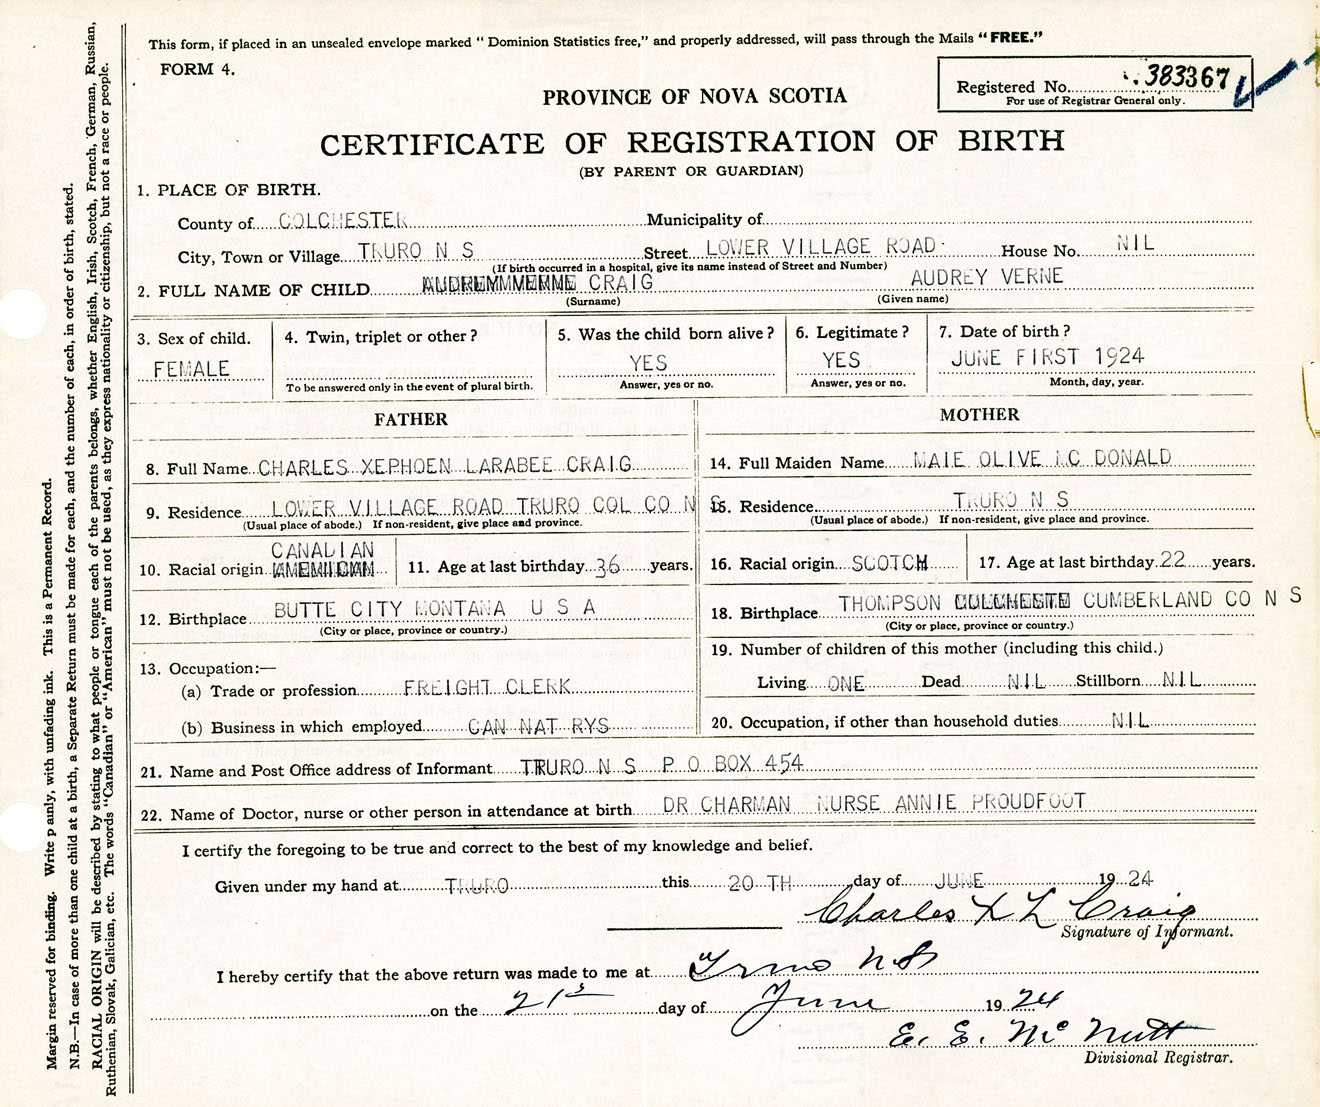 This form, if placed in an unsealed envelope marked "Dominion Statistics free," and properly addressed, will pass through the Mails "FREE."
FORM 4.
Registered No. 383367
For use of Registrar General only.
PROVINCE OF NOVA SCOTIA
CERTIFICATE OF REGISTRATION OF BIRTH
(BY PARENT OR GUARDIAN)
1. PLACE OF BIRTH.
County of COLCHESTER Municipality of
City, Town or Village TRURO N S Street LOWER VILLAGE ROAD. House No. NIL
(If birth occurred in a hospital, give its name instead of Street and Number)
2. FULL NAME OF CHILD CRAIG AUDREY VERNE
(Surname) (Given name)
3. Sex of child. FEMALE
4. Twin, triplet or other?
To be answered only in the event of plural birth.
5. Was the child born alive? YES
Answer, yes or no.
6. Legitimate? YES
Answer, yes or no.
7. Date of birth? JUNE FIRST 1924
Month, day, year.
FATHER
8. Full Name CHARLES XEPHOEN LARABEE CRAIG
9. Residence LOWER VILLAGE ROAD TRURO COL CO N S
(Usual place of abode.) If non-resident, give place and province.
CANADIAN
10. Racial origin
11. Age at last birthday 36 years.
12. Birthplace BUTTE CITY MONTANA U S A
(City or place, province or country.)
13. Occupation:—
(a) Trade or profession FREIGHT CLERK
(b) Business in which employed CAN NAT RYS
MOTHER
14. Full Maiden Name MAIE OLIVE MC DONALD
15. Residence TRURO N S
(Usual place of abode.) If non-resident, give place and province.
16. Racial origin SCOTCH
17. Age at last birthday 22 years.
18. Birthplace THOMPSON CUMBERLAND CO N S
(City or place, province or country.)
19. Number of children of this mother (including this child.)
Living ONE Dead NIL Stillborn NIL
20. Occupation, if other than household duties NIL
21. Name and Post Office address of Informant TRURO N S P O BOX 454
22. Name of Doctor, nurse or other person in attendance at birth DR CHARMAN NURSE ANNIE PROUDFOOT
I certify the foregoing to be true and correct to the best of my knowledge and belief.
Given under my hand at TRURO this 20 TH day of JUNE 19 24
Charles X L Craig
Signature of Informant.
I hereby certify that the above return was made to me at Truro N S
on the 21st day of June 19 24
E. E. McNutt
Divisional Registrar.
Margin reserved for binding. Write plainly, with unfading ink. This is a Permanent Record.
N.B.—In case of more than one child at a birth, a Separate Return must be made for each, and the number of each, in order of birth, stated.
RACIAL ORIGIN will be described by stating to what people or tongue each of the parents belongs, whether English, Irish, Scotch, French, German, Russian,
Ruthenian, Slovak, Galician, etc. The words "Canadian" or "American" must not be used, as they express nationality or citizenship, but not a race or people.